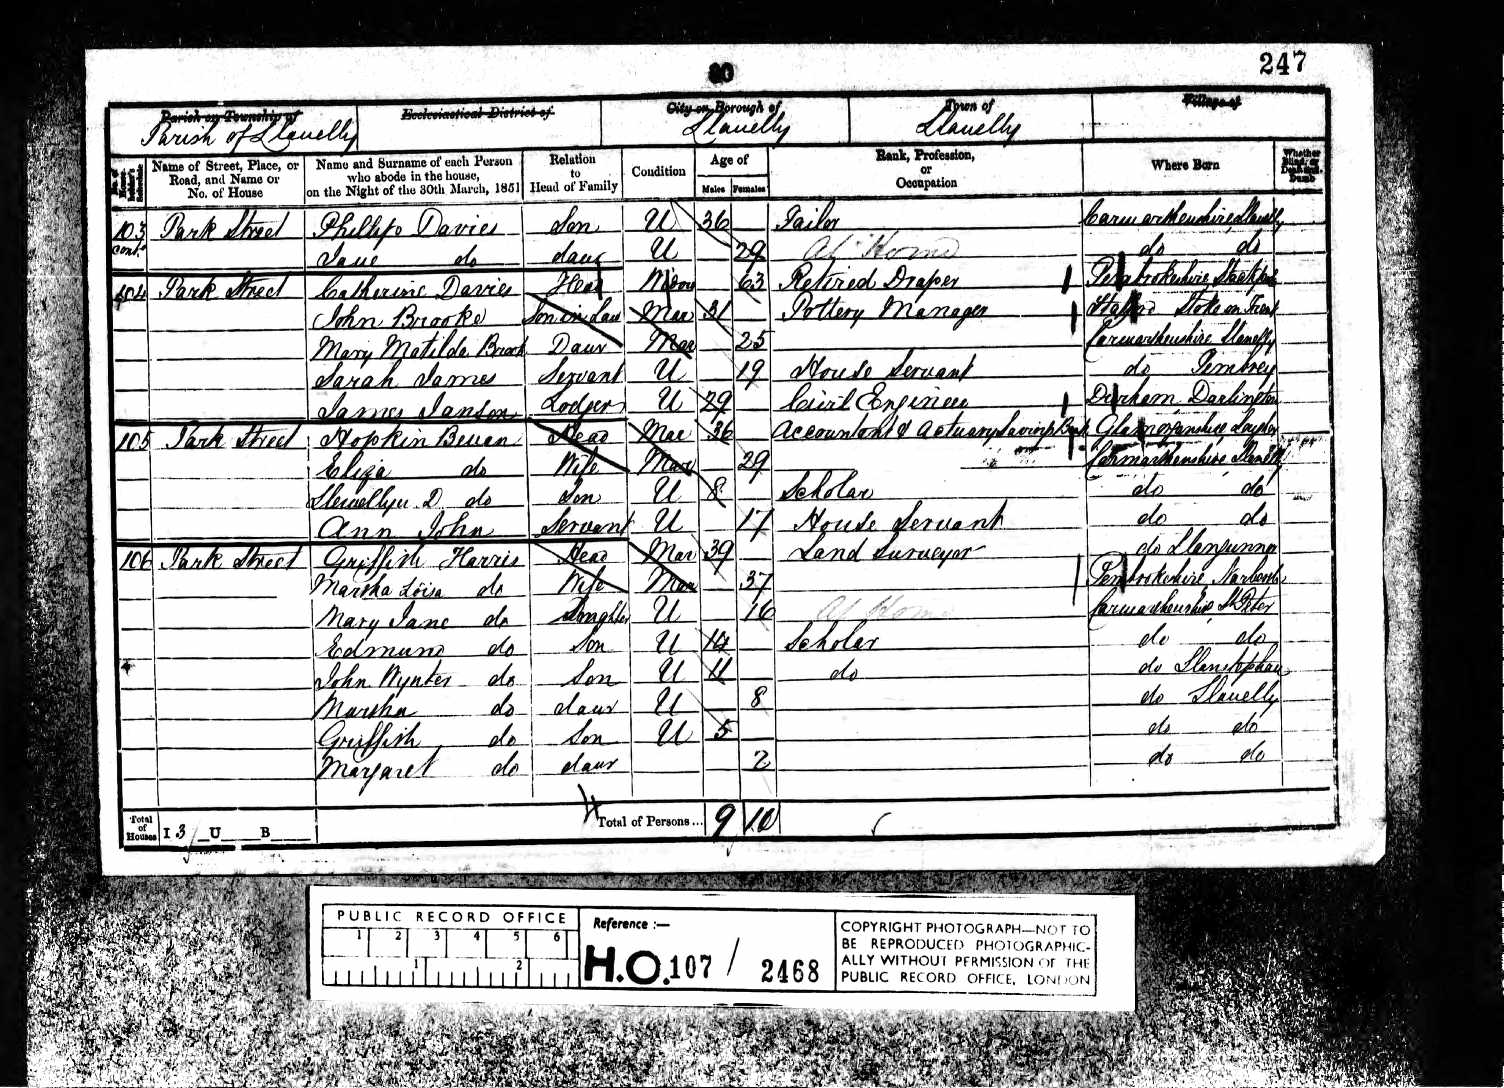 247
Parish or Township of
Ecclesiastical District of
City or Borough of
Town of
Village of
Parish of Llanelly
Llanelly
Llanelly
No. of House-holder's Schedule
Name of Street, Place, or Road, and Name or No. of House
Name and Surname of each Person who abode in the house, on the Night of the 30th March, 1851
Relation to Head of Family
Condition
Age of
Males Females
Rank, Profession, or Occupation
Where Born
Whether Blind, or Deaf-and-Dumb
103 Park Street Phillip Davies Son U 36 Tailor Carmarthenshire, Llanelly
cont. Jane do daur U 29 At Home do do
104 Park Street Catherine Davies Head Widow 63 Retired Draper Pembrokeshire
John Brooke Son in Law Mar 31 Pottery Manager Stafford Stoke on Trent
Mary Matilda Brook Daur Mar 25 Carmarthenshire Llanelly
Sarah James Servant U 19 House Servant do Pembrey
James Janson Lodger U 29 Civil Engineer Durham Darlington
105 Park Street Hopkin Bevan Head Mar 36 Accountant & Actuary Savings Bank Glamorganshire, Loughor
Eliza do Wife Mar 29 Carmarthenshire, Llanelly
Llewellyn D. do Son U 8 Scholar do do
Ann John Servant U 17 House Servant do do
106 Park Street Griffith Harris Head Mar 39 Land Surveyor do Llangunnor
Martha Loisa do Wife Mar 37 Pembrokeshire Narberth
Mary Jane do Daughter U 16 At Home Carmarthenshire, St Peter
Edmund do Son U 14 Scholar do do
John Wynter do Son U 11 do do Llanstephan
Martha do daur U 8 do Llanelly
Griffith do Son U 5 do do
Margaret do daur 2 do do
Total of Houses I 3 U B Total of Persons... 9 10
PUBLIC RECORD OFFICE
1 2 3 4 5 6
1 2
Reference :—
H.O. 107 / 2468
COPYRIGHT PHOTOGRAPH—NOT TO
BE REPRODUCED PHOTOGRAPHIC-
ALLY WITHOUT PERMISSION OF THE
PUBLIC RECORD OFFICE, LONDON